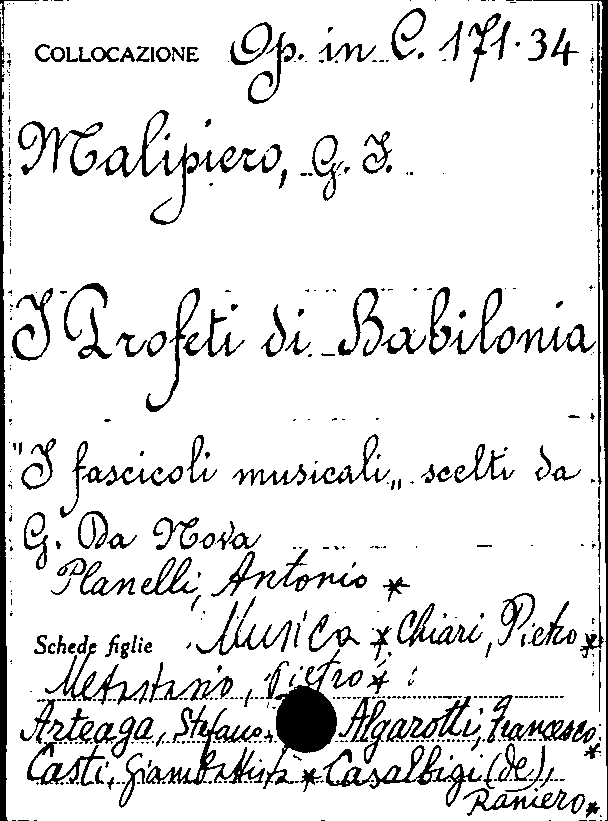 COLLOCAZIONE Op. in C. 171.34
Malipiero, G. F.
I Profeti di Babilonia
"I fascicoli musicali„ scelti da
G. Da Nova
Planelli, Antonio *
Schede figlie Musica * Chiari, Pietro *
Metastasio, Pietro *
Arteaga, Stefano * Algarotti, Francesco *
Casti, Giambattista * Casalbigi (de),
Raniero *